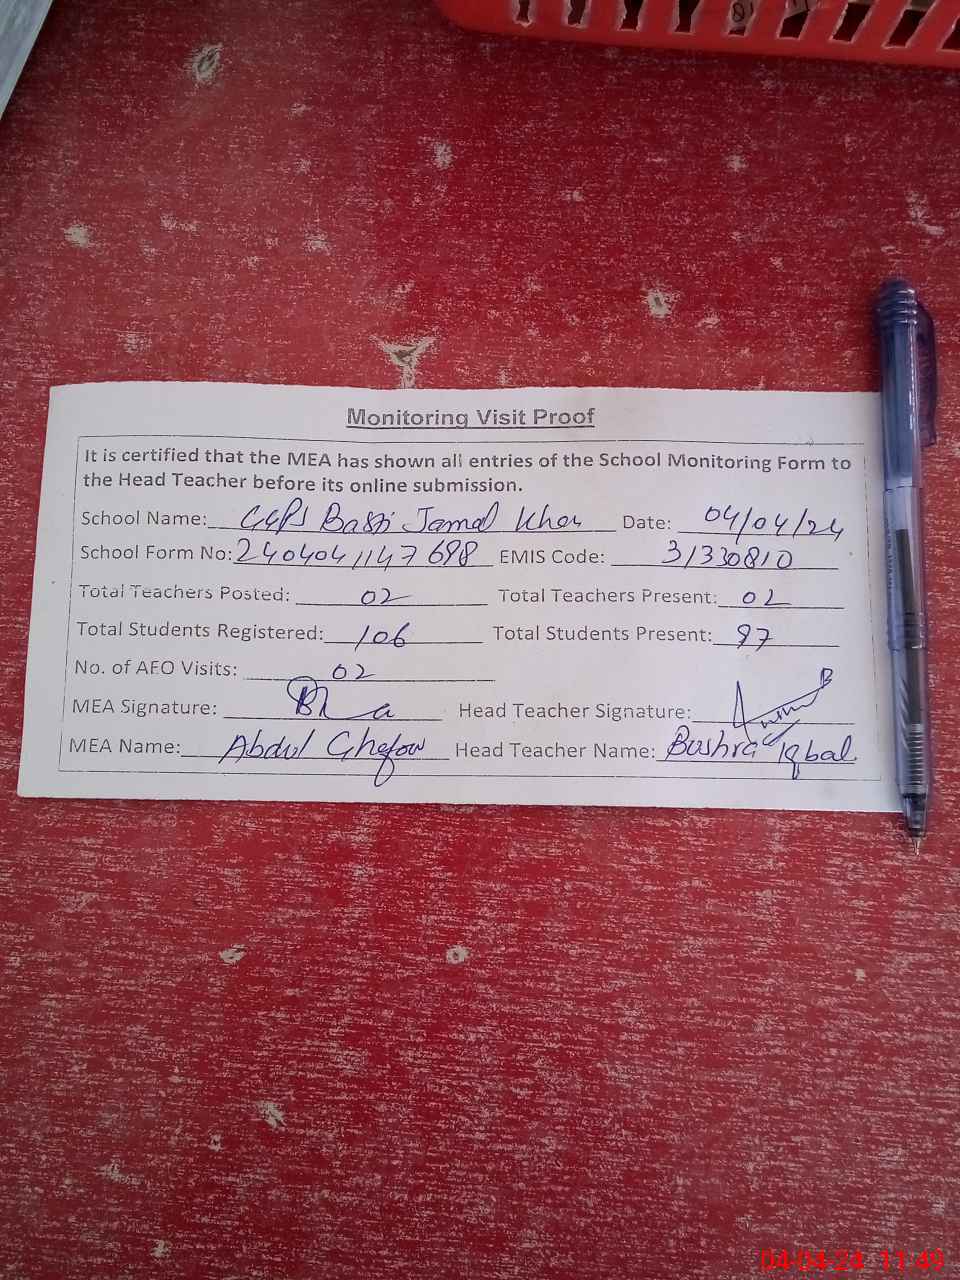 Monitoring Visit Proof
It is certified that the MEA has shown all entries of the School Monitoring Form to
the Head Teacher before its online submission.
School Name: GGPS Basti Jamal Khan Date: 04/04/24
School Form No: 2404041147698 EMIS Code: 31330810
Total Teachers Posted: 02 Total Teachers Present: 02
Total Students Registered: 106 Total Students Present: 97
No. of AEO Visits: 02
MEA Signature: Head Teacher Signature:
MEA Name: Abdul Ghafoor Head Teacher Name: Bushra Iqbal
04-04-24 11:49